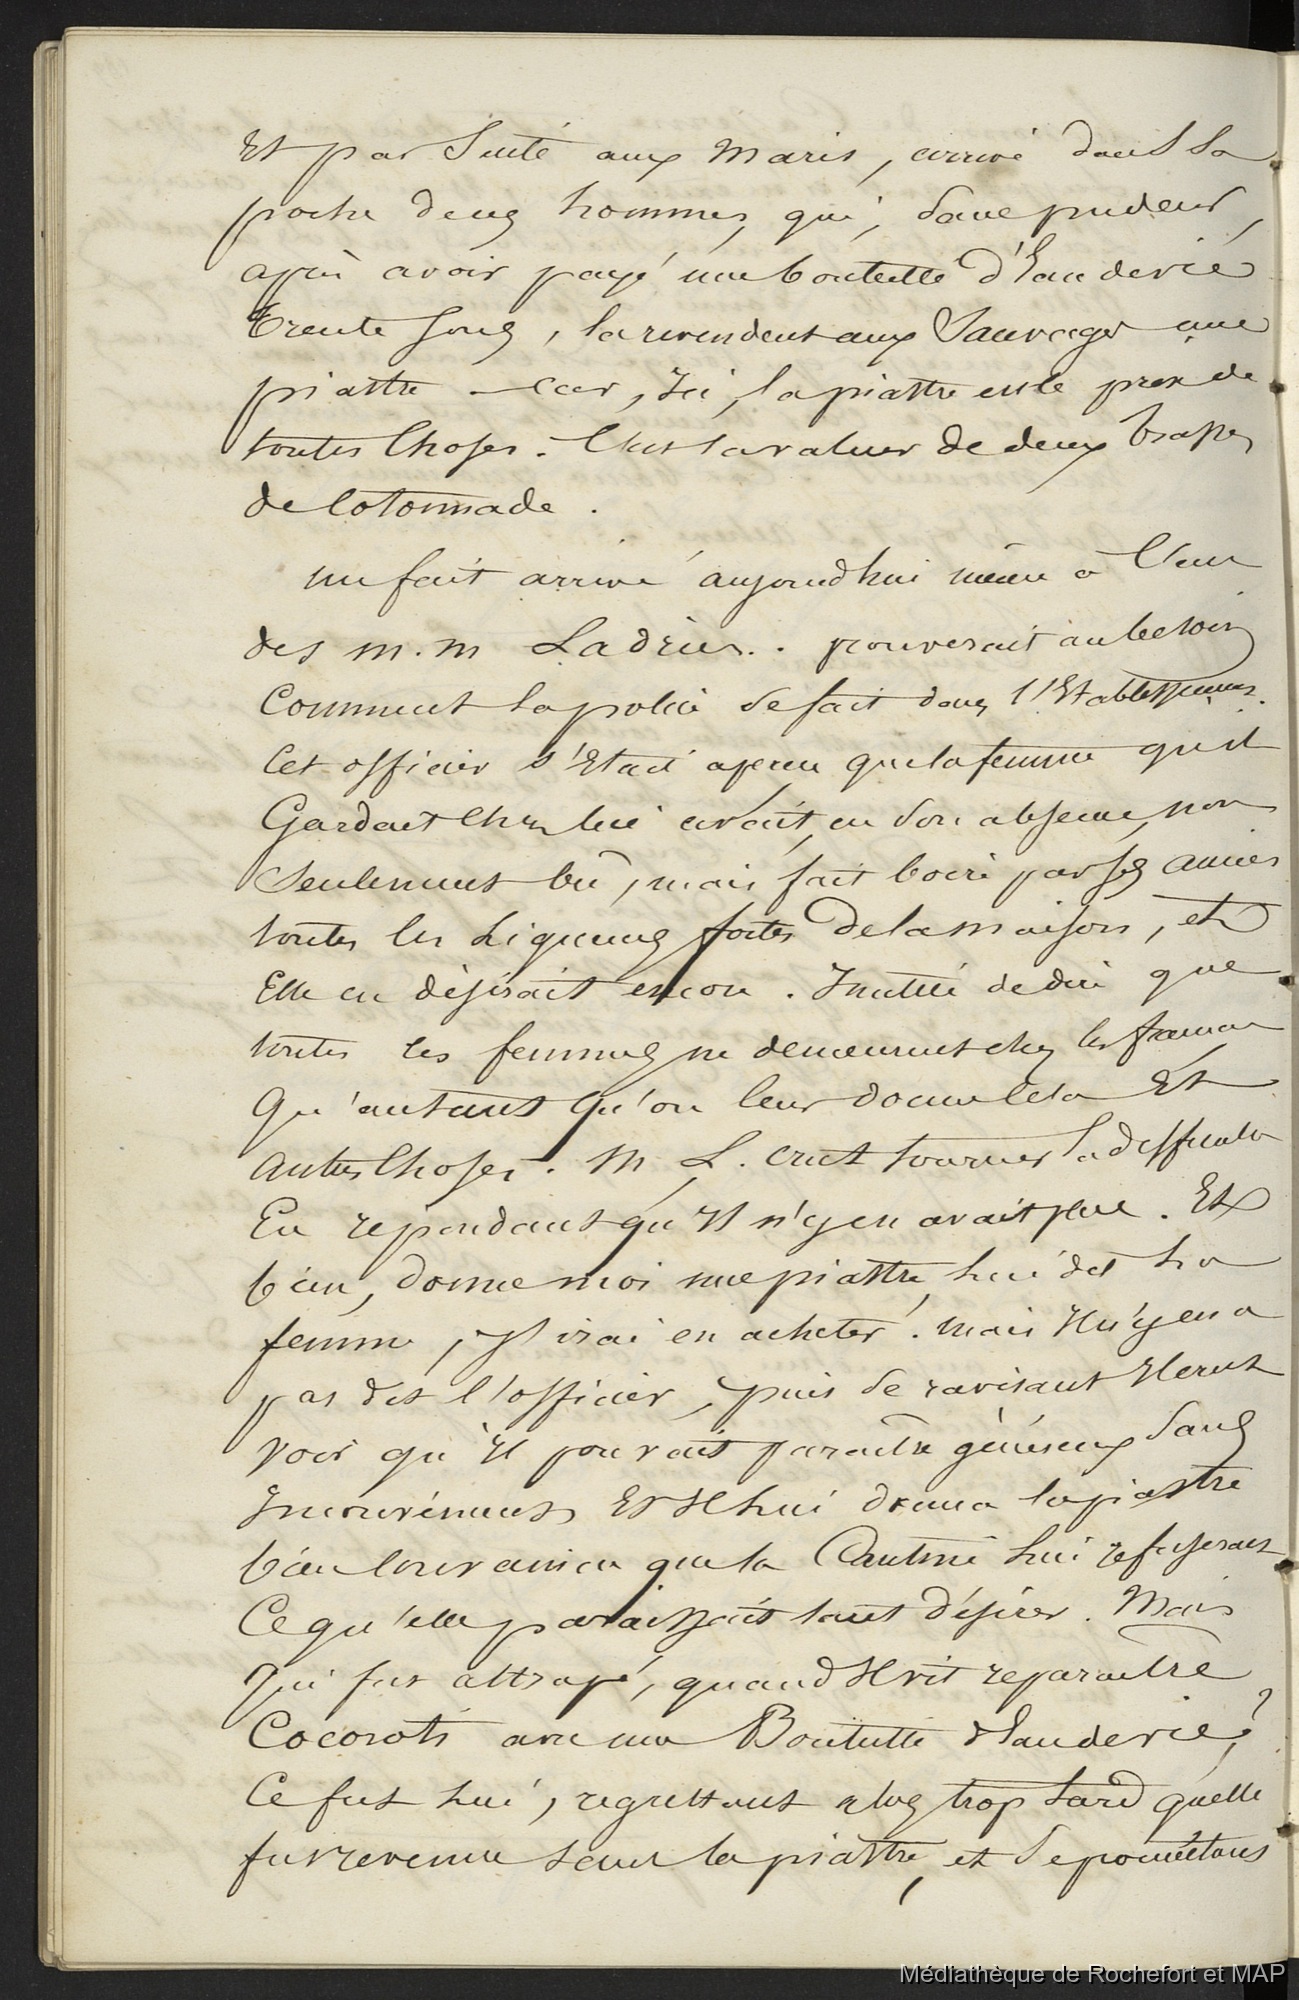 Et par Suite aux Maris, arrive dans la
poche deux hommes qui, Sans pudeur,
après avoir payé une bouteille d'Eau de vie
trente sous, la revendent aux Sauvages une
piastre - car, Ici, la piastre est le prix de
toutes Choses. C'est la valeur de deux brasses
de Cotonnade.
un fait arrivé aujourd'hui même à l'un
des m.m Ladrier.. prouverait au besoin
Comment la police se fait dans l'Etablissement.
Cet officier s'Etait aperçu que la femme qu'il
Gardait Chez lui avait, en Son absence, non
Seulement bu, mais fait boire par ses amies
toutes les Liqueurs fortes de la maison, et
Elle en désirait encore. Inutile de dire que
toutes ces femmes ne demeurent chez les français
Qu'autant qu'on leur donne Cela Et
autres Choses. M L. crut tourner la difficulté
En repondant qu'Il n'y en avait plus. Et
bien, donne moi une piastre, lui dit la
femme, J'irai en acheter. Mais Il n'y en a
pas dit l'officier, puis se ravisant Il crut
voir qu'Il pouvait paraitre généreux Sans
Inconvénients Et Il lui donna la piastre
bien Convaincu que la Cantine lui refuserait
Ce qu'elle paraissait tant désirer. Mais
Qui fut attrapé, quand Il vit reparaitre
Cocoroti avec une Bouteille d'Eau de vie?
Ce fut lui, regrettant plus trop tard quelle
fut revenue sans la piastre, et Se promettant